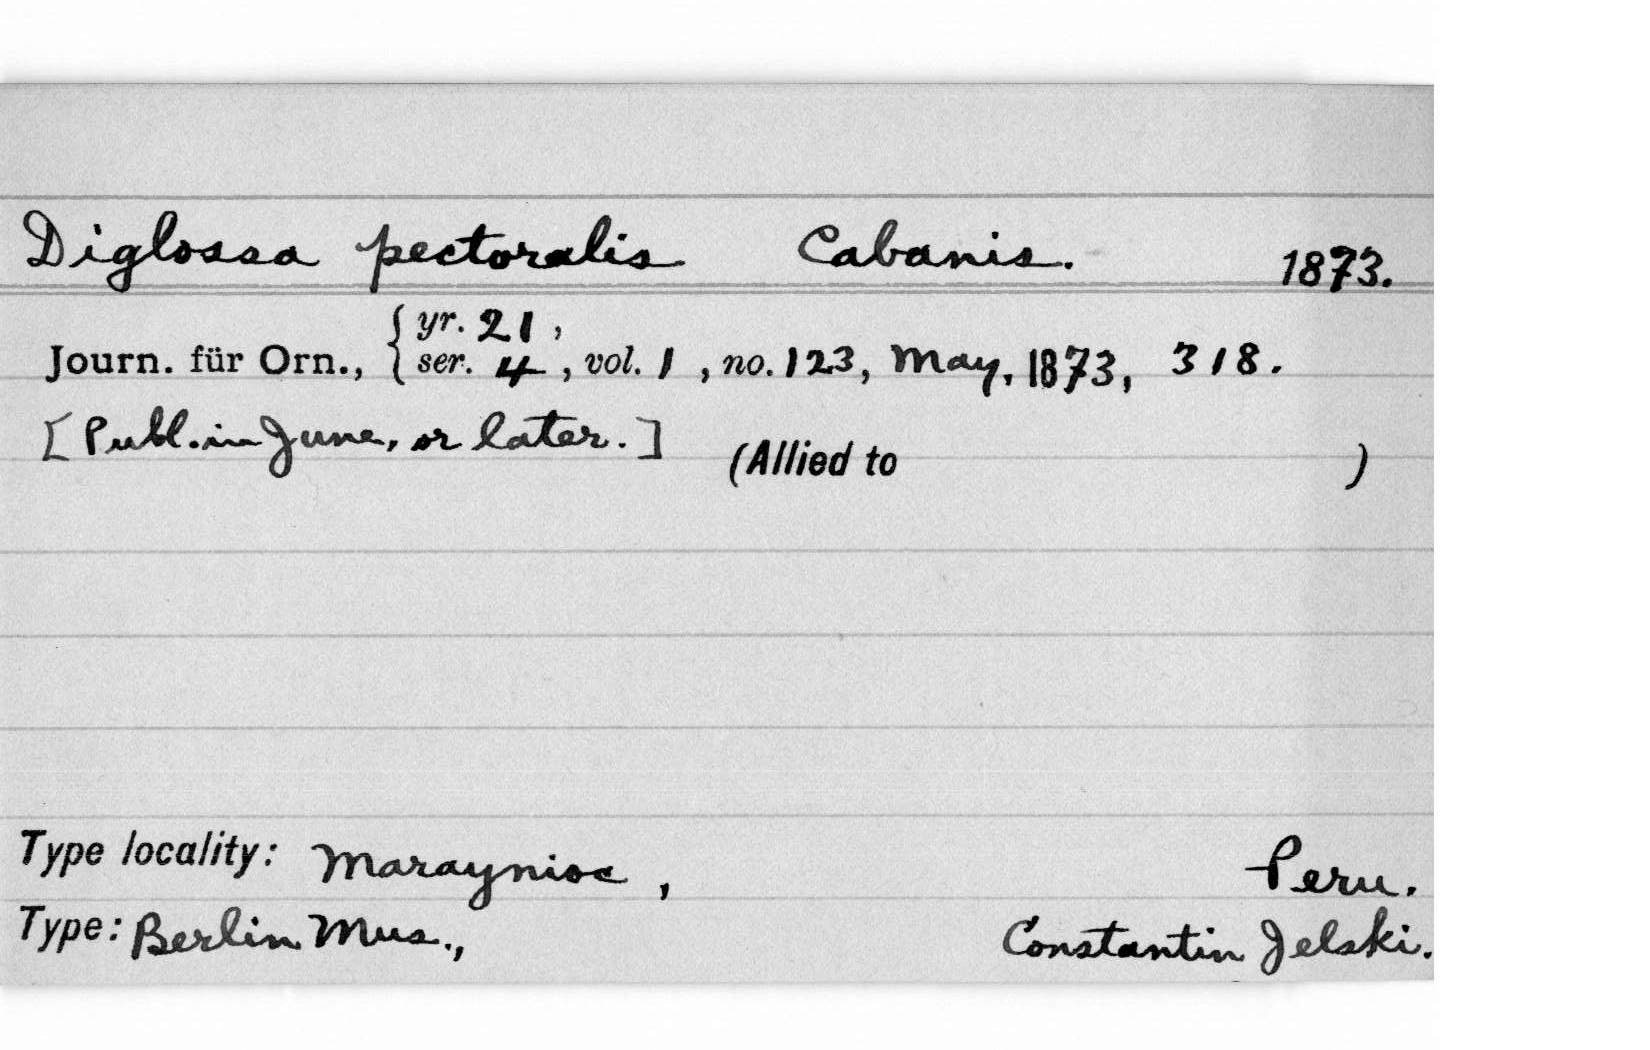 Diglossa pectoralis Cabanis. 1873.
Journ. für Orn., { yr. 21,
ser. 4, vol. 1, no. 123, May, 1873, 318.
[Publ. in June, or later.] (Allied to )
Type locality: Maraynioc, Peru.
Type: Berlin Mus., Constantin Jelski.